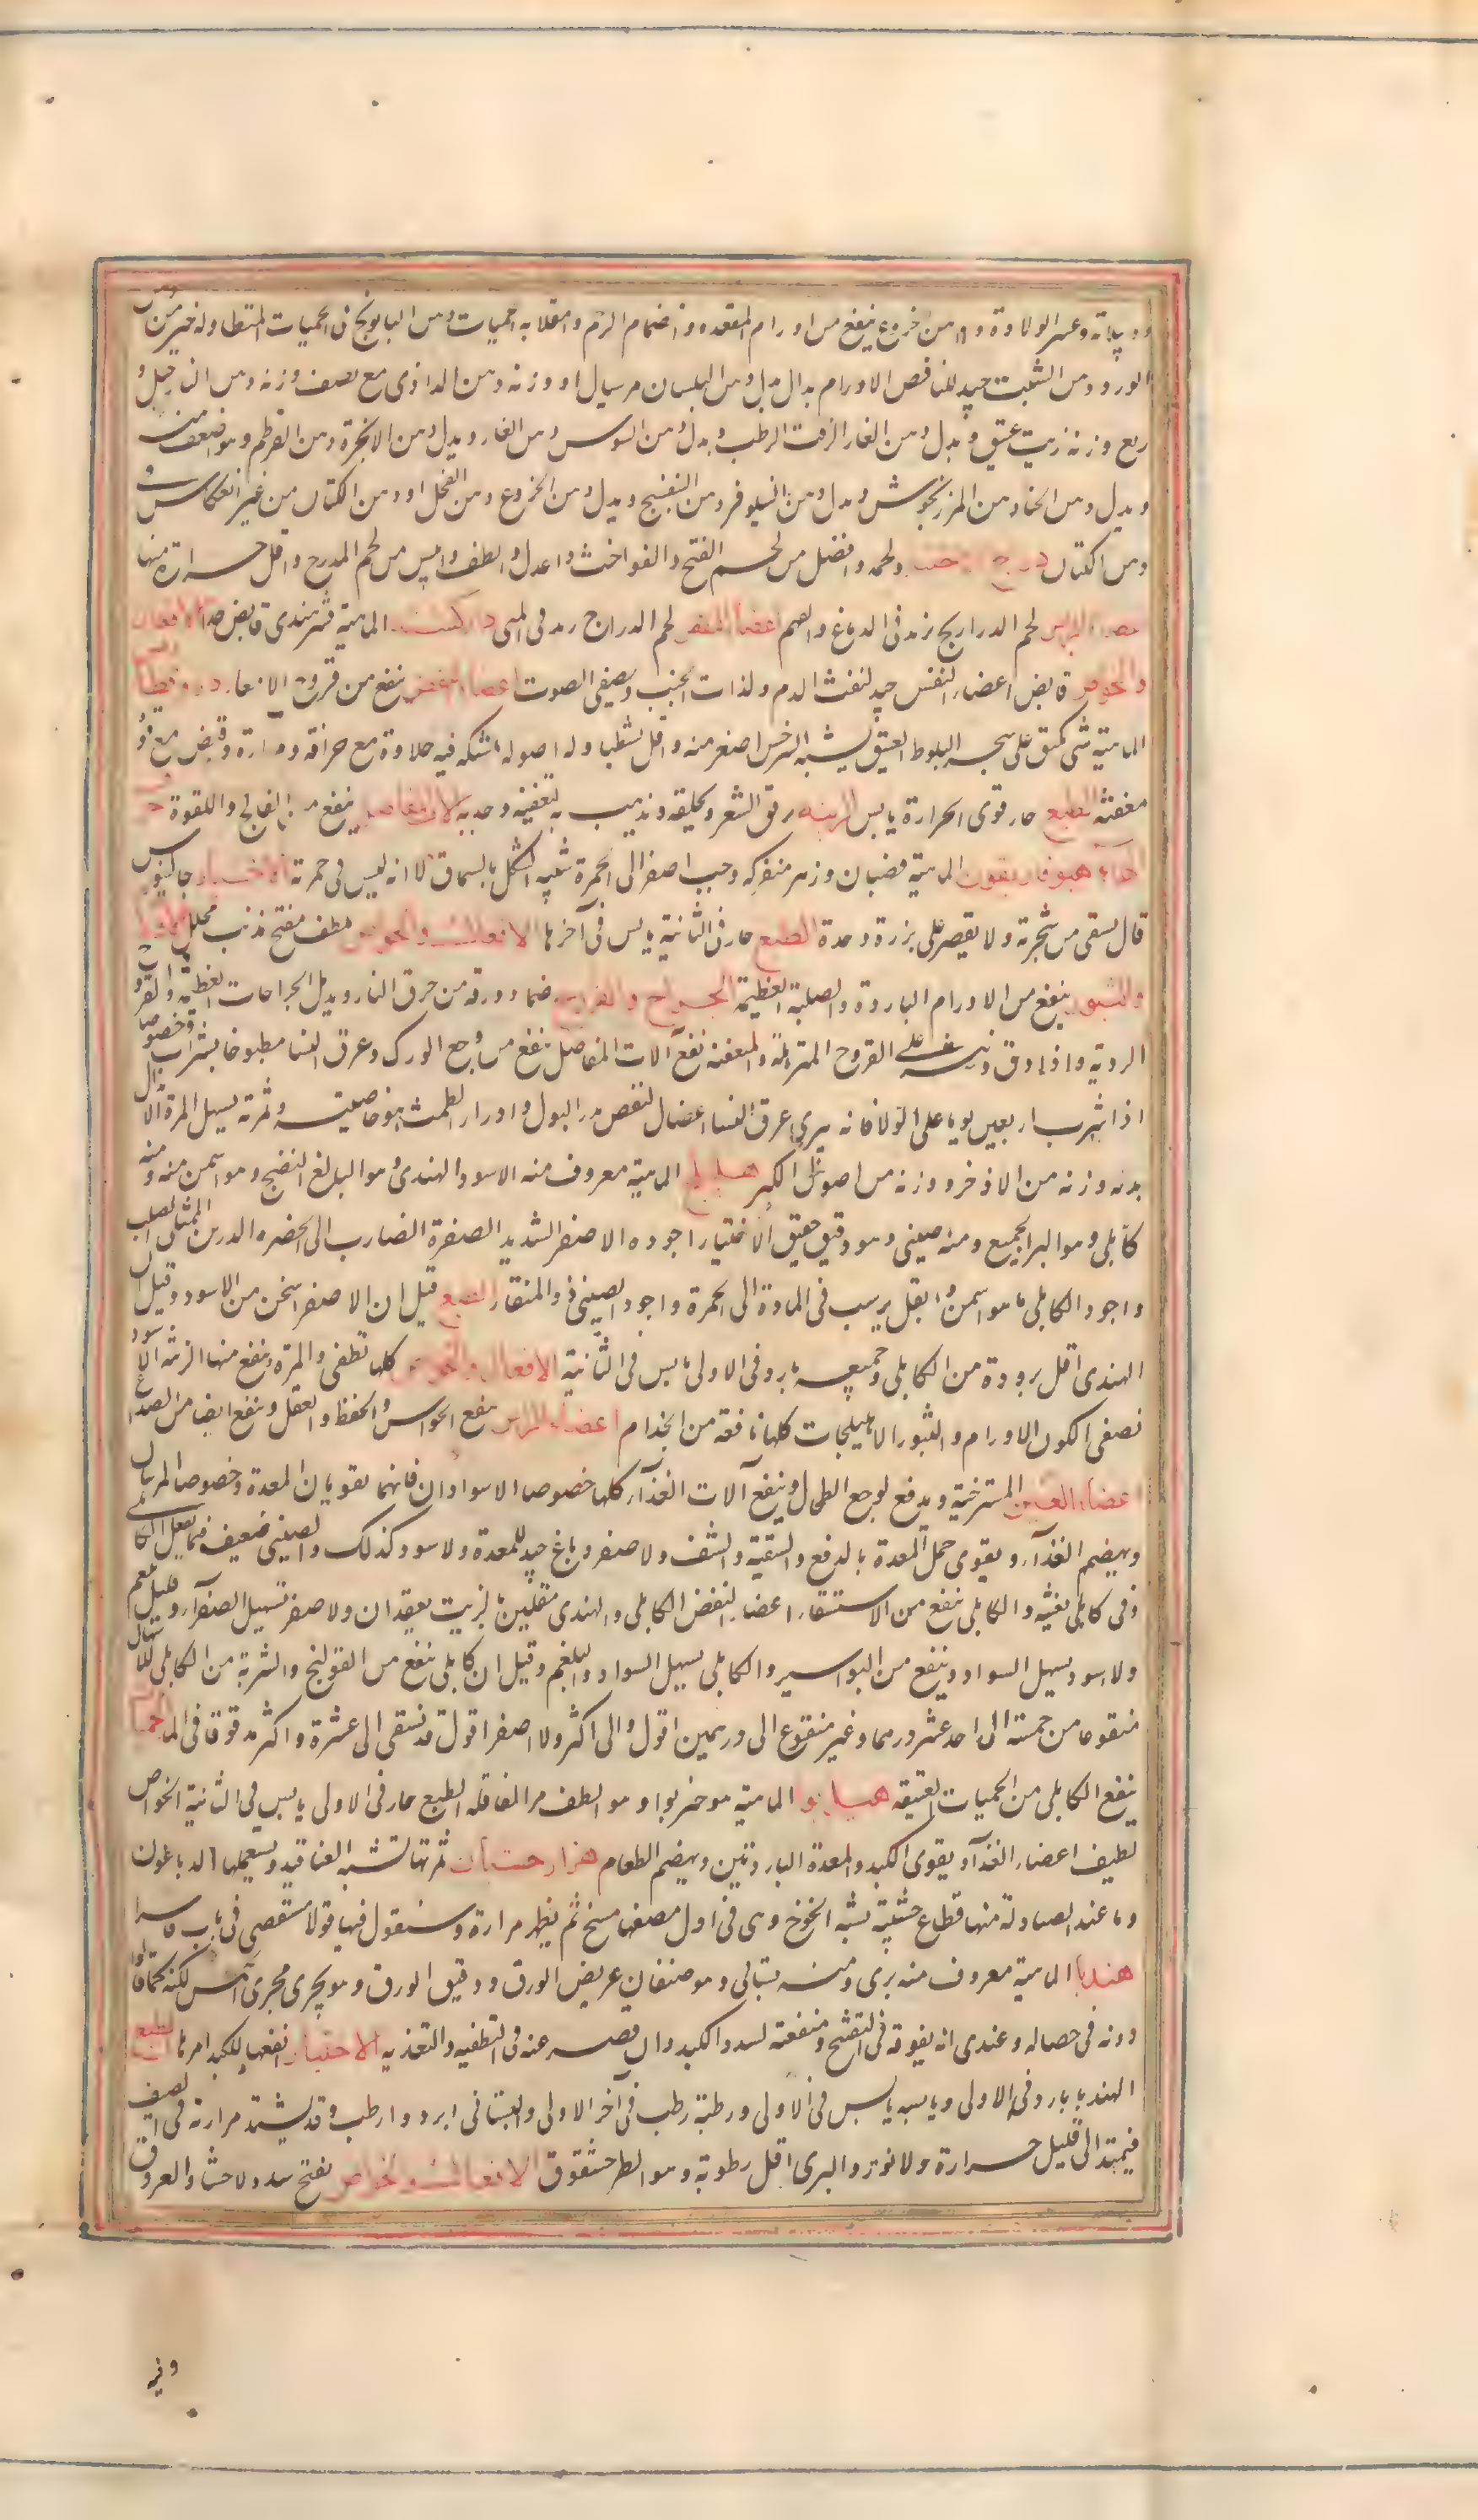 وعسر الولادة ومن خروع ينفع من اورام المقعده وانضمام الرحم وانقلابه الحميات ومن البابونج فى الحميات المتطاولة خير من دهن
الورد ومن الشبت جيد للنافض الاورام بدال بدل ومن البلسان مر سيال او وزنه ومن الداذى مع نصف وزنه ومن النارجيل و
ربع وزنه زيت عتيق وبدل ومن الغار الزفت الرطب وبدل ومن السوس ومن الغار وبدل ومن الانجرة ومن القرطم وهو اضعف منه
وبدل ومن الحنا ومن المرزنجوش وبدل ومن النيلوفر ومن البنفسج وبدل ومن الخروع ومن الفجل او ومن الكتان من غير انعكاس
ومن الكتان دراج ولحمه افضل من لحم الفتح والفواخت واعدل والطف وايبس من لحم المدرج واقل حرارة منها
لحم الدراريج يزيد فى الدماغ والفهم اعضا النفض لحم الدراج يزيد فى المنى الماهية قشر هندى قابض الافعال
والخواص قابض اعضاء النفس جيد لنفث الدم ولذات الجنب ويصفى الصوت اعضاء النفض ينفع من قروح الامعاء
الماهية شى يكون على شجر البلوط العتيق يشبه السرخس اصغر منه واقل تشطبا وله اصول متشبكه فيه حلاوة مع حرافة ومرارة وقبض مع قوة
معفنة الطبع حار قوى الحرارة يابس الزينه يرقق الشعر ويحلقه ويذهب به لتعفينه وجذبه الات المفاصل ينفع من الفالج واللقوة حرف
الهاء هيوفاريقون الماهية قضبان وزهر متفركه وحب اصفر الى الحمرة شبيه الشكل بالسماق الا انه ليس فى حمرته الاختيار جالينوس
قال يسقى من شجرته ولا يقتصر على بزرة وحده الطبع حار فى الثانية يابس فى آخرها الافعال والخواص ملطف مفتح مذنب محلل
والبثور ينفع من الاورام الباردة والصلبة العظيمة الجراح والقروح ضماد ورقه من حرق النار ويدمل الجراحات العظيمة والقروح
الردية واذا دق ونثر على القروح المترهلة والمتعفنة نفع آلات المفاصل ينفع من وجع الورك وعرق النسا مطبوخا بشراب وخصوصا
اذا شرب اربعين يوما على الولا فانه يبرى عرق النسا اعضا النفض مدر البول وادرار الطمث بخاصيته وثمرته يسهل المرة الابدال
بدله وزنه من الاذخر ووزنه من اصول الكبر هليلج الماهية معروف منه الاسود الهندى وهو البالغ النضج وهو اسمن منه ومنه
كابلى وهو اكبر الجميع ومنه صينى وهو دقيق خفيف الاختيار اجوده الاصفر الشديد الصفرة الضارب الى الخضره الرزين الممتلى الصلب
واجود الكابلى ما هو اسمن واثقل يرسب فى الماء وة الى الحمرة واجود الصينى ذو المنقار الطبع قيل ان الاصفر اسخن من الاسود وقيل ان
الهندى اقل برودة من الكابلى وجميعه بارد فى الاولى يابس فى الثانية الافعال والخواص كلها تطفى المرة وينفع منها الزينة الاسود
نصفى اللون الاورام والبثور الاهليلجات كلها نافعة من الجذام اعضاء الراس ينفع الحواس والحفظ والعقل وينفع ايضا من الصداع
اعضاء العين المسترخية ويدفع لوجع الطحال وينفع آلات الغذآء كلها خصوصا الاسوادان فانهما يقويان المعدة وخصوصا المربيان
ويهضم الغذآء ويقوى خمل المعدة بالدفع والتنقية والنشف والاصفر دباغ جيد للمعدة والاسود كذلك والصينى ضعيف فيما يفعل الكابلى
وفى كابلى تغثيه والكابلى ينفع من الاستسقاء اعضاء النفض الكابلى والهندى مقليين بالزيت يعقدان والاصفر تسهيل الصفرآء وقليل بلغم
والاسود يسهل السوداء وينفع من البواسير والكابلى يسهل السوداء والبلغم وقيل ان كابلى ينفع من القولنج والشربة من الكابلى للاسهال
منقوعا من خمسة الى احد عشر درهما وغير منقوع الى درهمين اقول والى اكثر والاصفر اقول قد نسقى الى عشرة واكثر مدقوقا فى الماء الحميات
ينفع الكابلى من الحميات العتيقه هيل بوا الماهية هو خير بوا وهو الطف من القاقله الطبع حار فى الاولى يابس فى الثانية الخواص
لطيف اعضاء الغذآء يقوى الكبد والمعدة الباردتين ويهضم الطعام هزار جشان ثمرتها تشبه العناقيد ويستعملها الدباغون
وما عند الصيادلة منها قطاع خشبية يشبه الخوخ وهى فى اول مضغها مسخ ثم يظهر مرارة وسنقول فيها قولا مستقصى فى باب فاسرا
هندبا الماهية معروف منه برى ومنه بستانى وهو صنفان عريض الورق ودقيق الورق وهو يجرى مجرى الخس لكنه كما قالوا
دونه فى خصاله وعندى انه يفوقه فى التفتيح ومنفعته لسدد الكبد وان قصر عنه فى التطفيه والتغذيه الاختيار انفعها للكبد امرها الطبع
الهندبا بارد فى الاولى ويابسه يابس فى الاولى ورطبه رطب فى آخر الاولى والبستانى ابرد وارطب وقد يشتد مرارته فى الصيف
فيميل الى قليل حرارة ولا يؤثر والبرى اقل رطوبة وهو الطرخشقوق الافعال والخواص يفتح سدد الاحشاء والعروق
وفيه